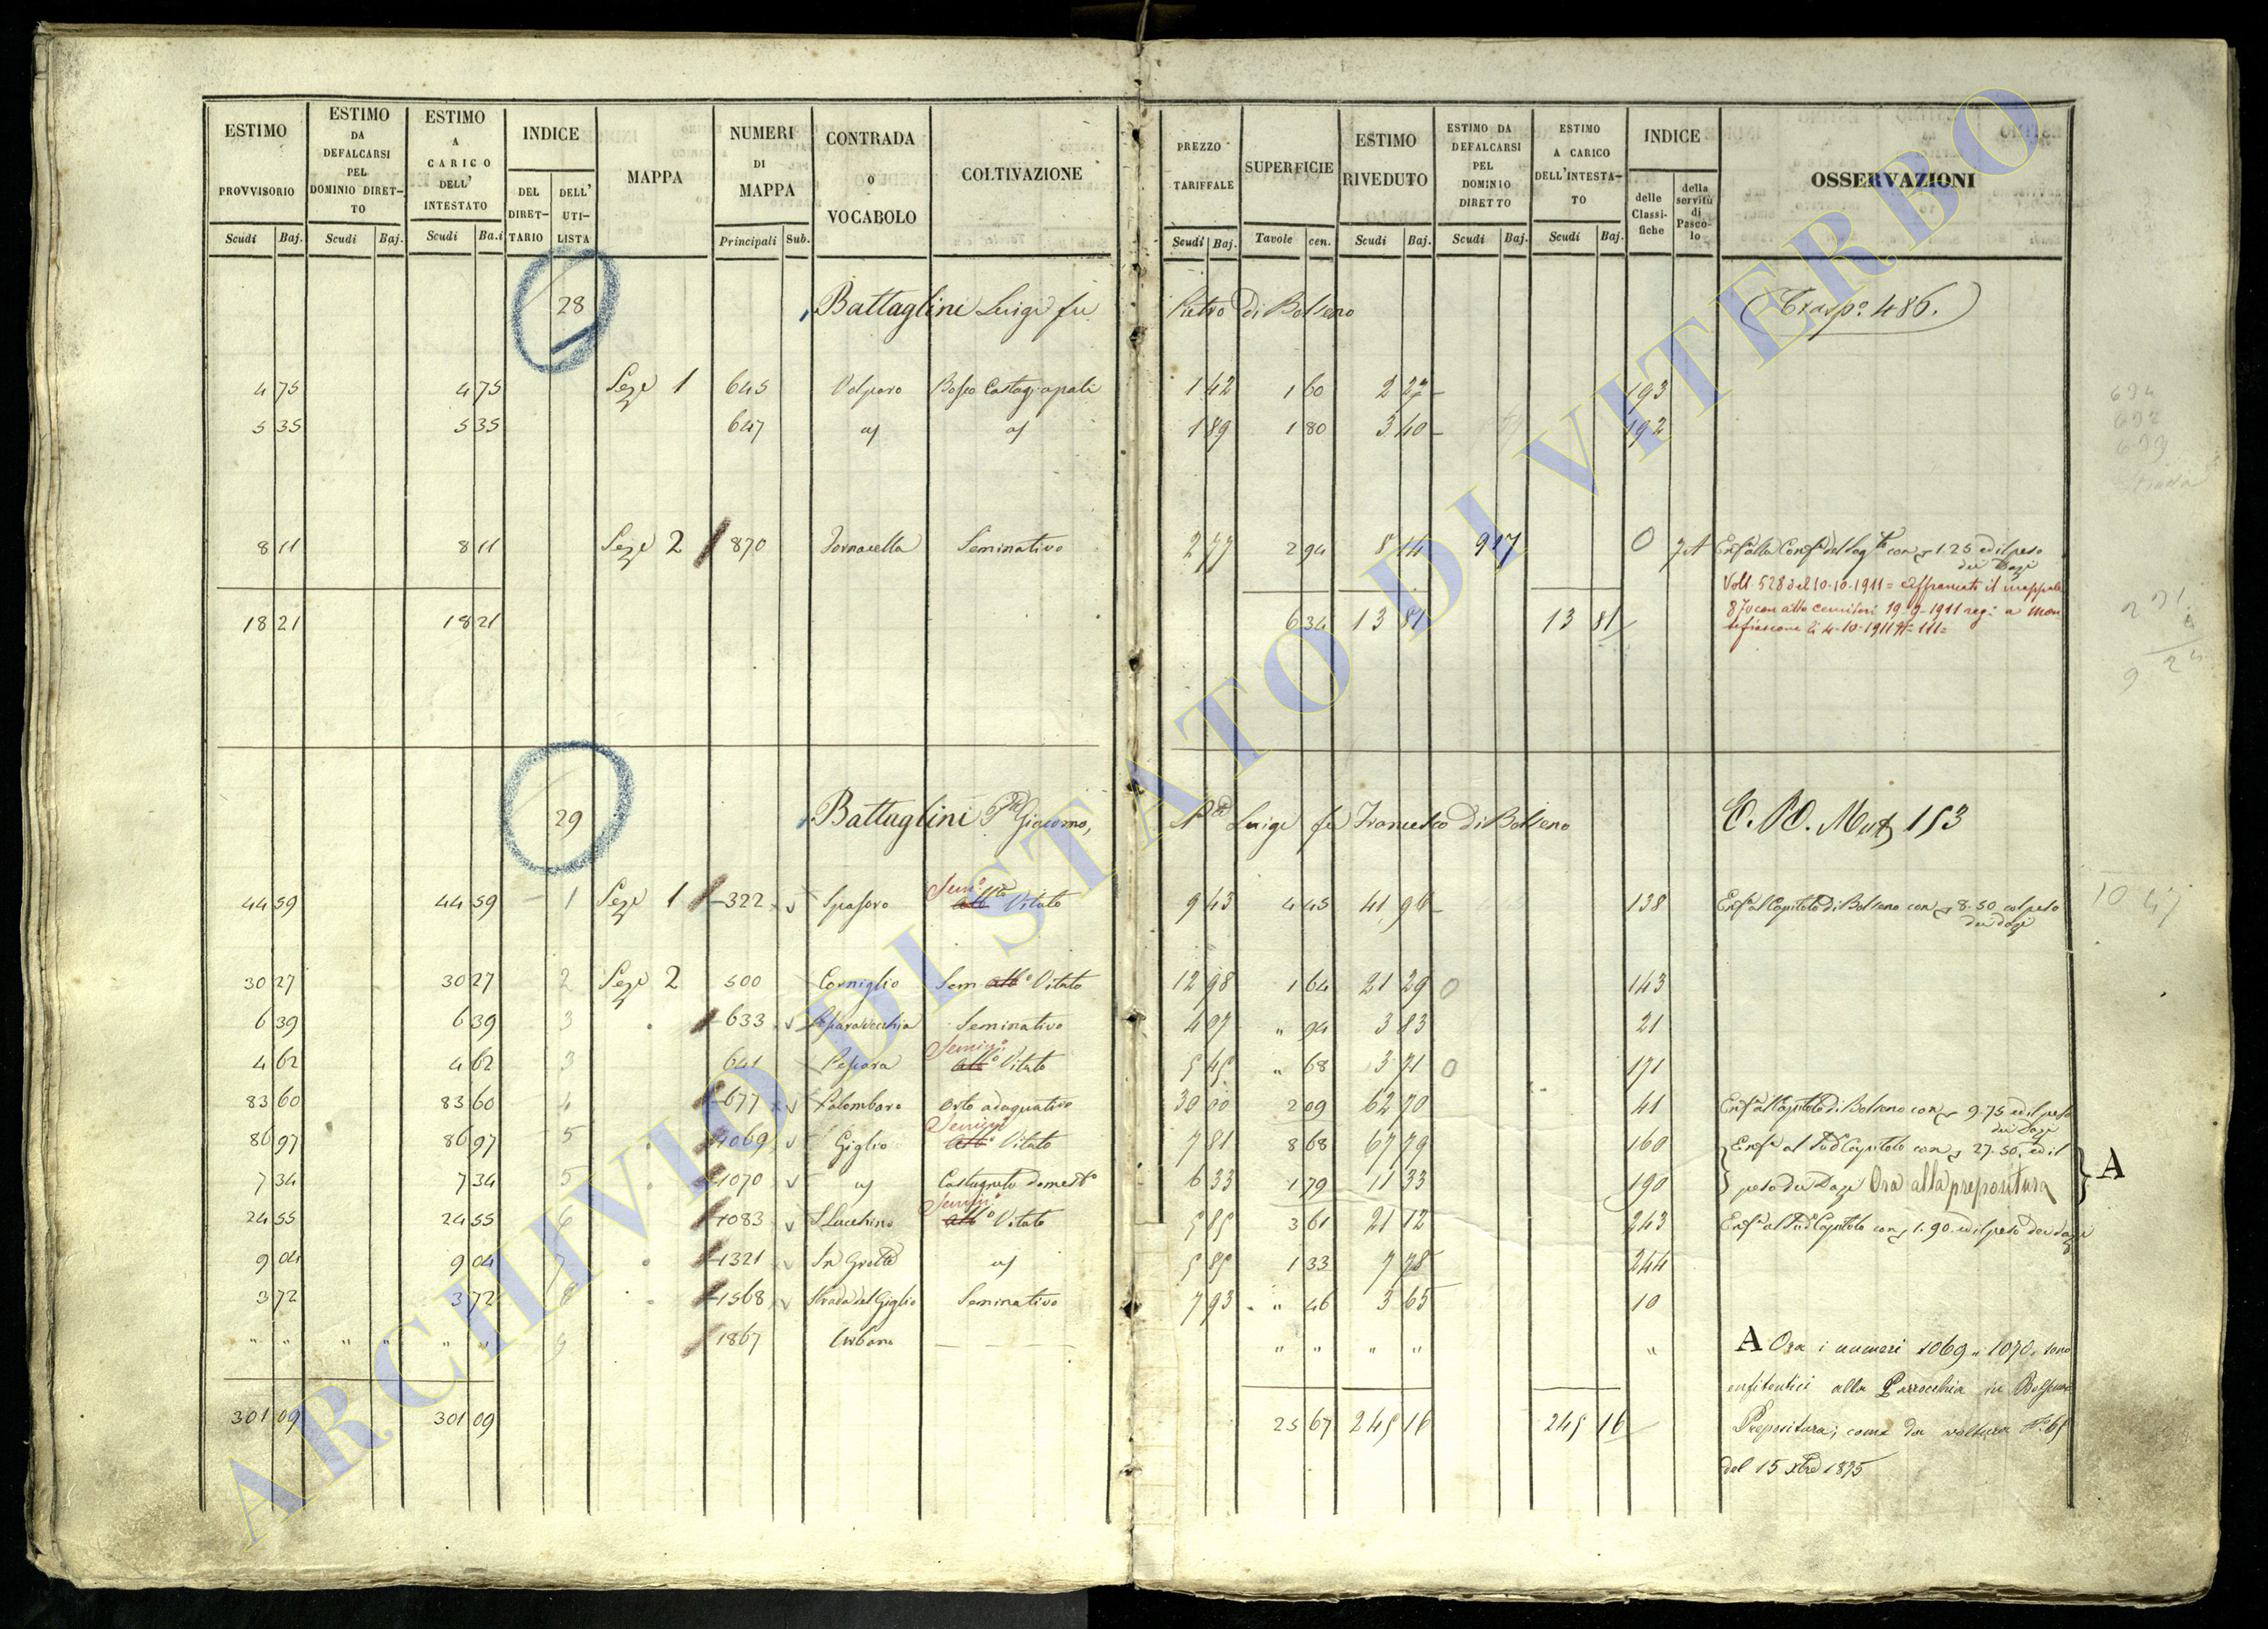 ESTIMO PROVVISORIO Scudi Baj. | ESTIMO DA DEFALCARSI PEL DOMINIO DIRET-TO Scudi Baj. | ESTIMO A CARICO DELL' INTESTATO Scudi Ba.i | INDICE DEL DIRET-TARIO DELL' UTI-LISTA | MAPPA | NUMERI DI MAPPA Principali Sub. | CONTRADA O VOCABOLO | COLTIVAZIONE | PREZZO TARIFFALE Scudi Baj. | SUPERFICIE Tavole cen. | ESTIMO RIVEDUTO Scudi Baj. | ESTIMO DA DEFALCARSI PEL DOMINIO DIRETTO Scudi Baj. | ESTIMO A CARICO DELL'INTESTA-TO Scudi Baj. | INDICE delle Classi-fiche della servitù di Pasco-lo | OSSERVAZIONI
28 Battaglini Luigi fu Pietro di Bolseno (Trasp.o 486.)
4 75 4 75 Sez.e 1 645 Bosco Castag. 1 42 1 60 2 27 193
5 35 5 35 647 1 89 1 80 3 40 192
8 11 8 11 Sez.e 2 870 Seminativo 2 77 2 94 8 14 9 17 0 con 1.25 ed il peso dei Dazi
Volt. 528 del 10-10-1911 = Affrancato il mappale
870 con atto 19-9-1911 reg. a Mon
tefiascone li 4-10-1911 N. 111=
18 21 18 21 6 34 13 81 13 81
29 Battaglini Giacomo, Luigi fu Francesco di Bolseno 153
44 59 44 59 1 Sez.e 1 322 Semi.o Vitato 9 43 4 45 41 96 138 Enf.a al Capitolo di Bolseno con 8.50 col peso dei dazi
30 27 30 27 2 Sez.e 2 500 Corniglio Sem. Alb.o Vitato 12 98 1 64 21 29 0 143
6 39 6 39 3 633 Seminativo 4 07 " 94 3 83 21
4 62 4 62 3 641 Pescara Semin.o Vitato 5 45 " 68 3 71 0 171
83 60 83 60 4 677 Palombaro Orto adaquativo 30 00 2 09 62 70 41 Enf.a al Capitolo di Bolseno con 9.75 ed il peso dei Dazi
86 97 86 97 5 1069 Giglio Semin.o Vitato 7 81 8 68 67 79 160 Enf.a al Sud.o Capitolo con 27.50. ed il
7 34 7 34 5 1070 Castagneto domest.o 6 33 1 79 11 33 190 peso dei Dazi Ora alla prepositura A
24 55 24 55 6 1083 Semin.o Alb.o Vitato 5 85 3 61 21 12 243 Enf.a al Sud.o Capitolo con 1.90. ed il peso dei dazi
9 04 9 04 7 1321 Grotte 5 85 1 33 7 78 244
3 72 3 72 8 1568 Strada del Giglio Seminativo 7 93 " 46 3 65 10
" " " " " " 9 1867 Urbano " " " " " A Ora i numeri 1069 " 1070. sono
enfiteutici alla Parrocchia in Bolsena
301 09 301 09 25 67 245 16 245 16 Prepositura, come da voltura N. 65
del 15 1875
ARCHIVIO DI STATO DI VITERBO